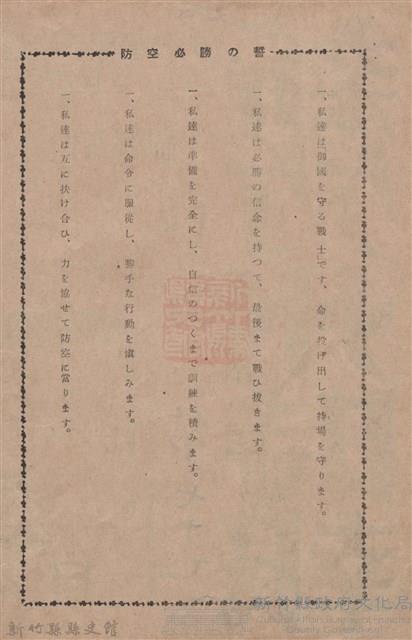 防空必勝の誓
一、私達は「御國を守る戰士」です、命を投げ出して持場を守ります。
一、私達は必勝の信念を持つて、最後まで戰ひ拔きます。
一、私達は準備を完全にし、自信のつくまで訓練を積みます。
一、私達は命令に服從し、勝手な行動を愼しみます。
一、私達は互に扶け合ひ、力を協せて防空に當ります。
新竹縣政府文化局
Cultural Affairs Bureau of Hsinchu
County Government
新竹縣縣史館